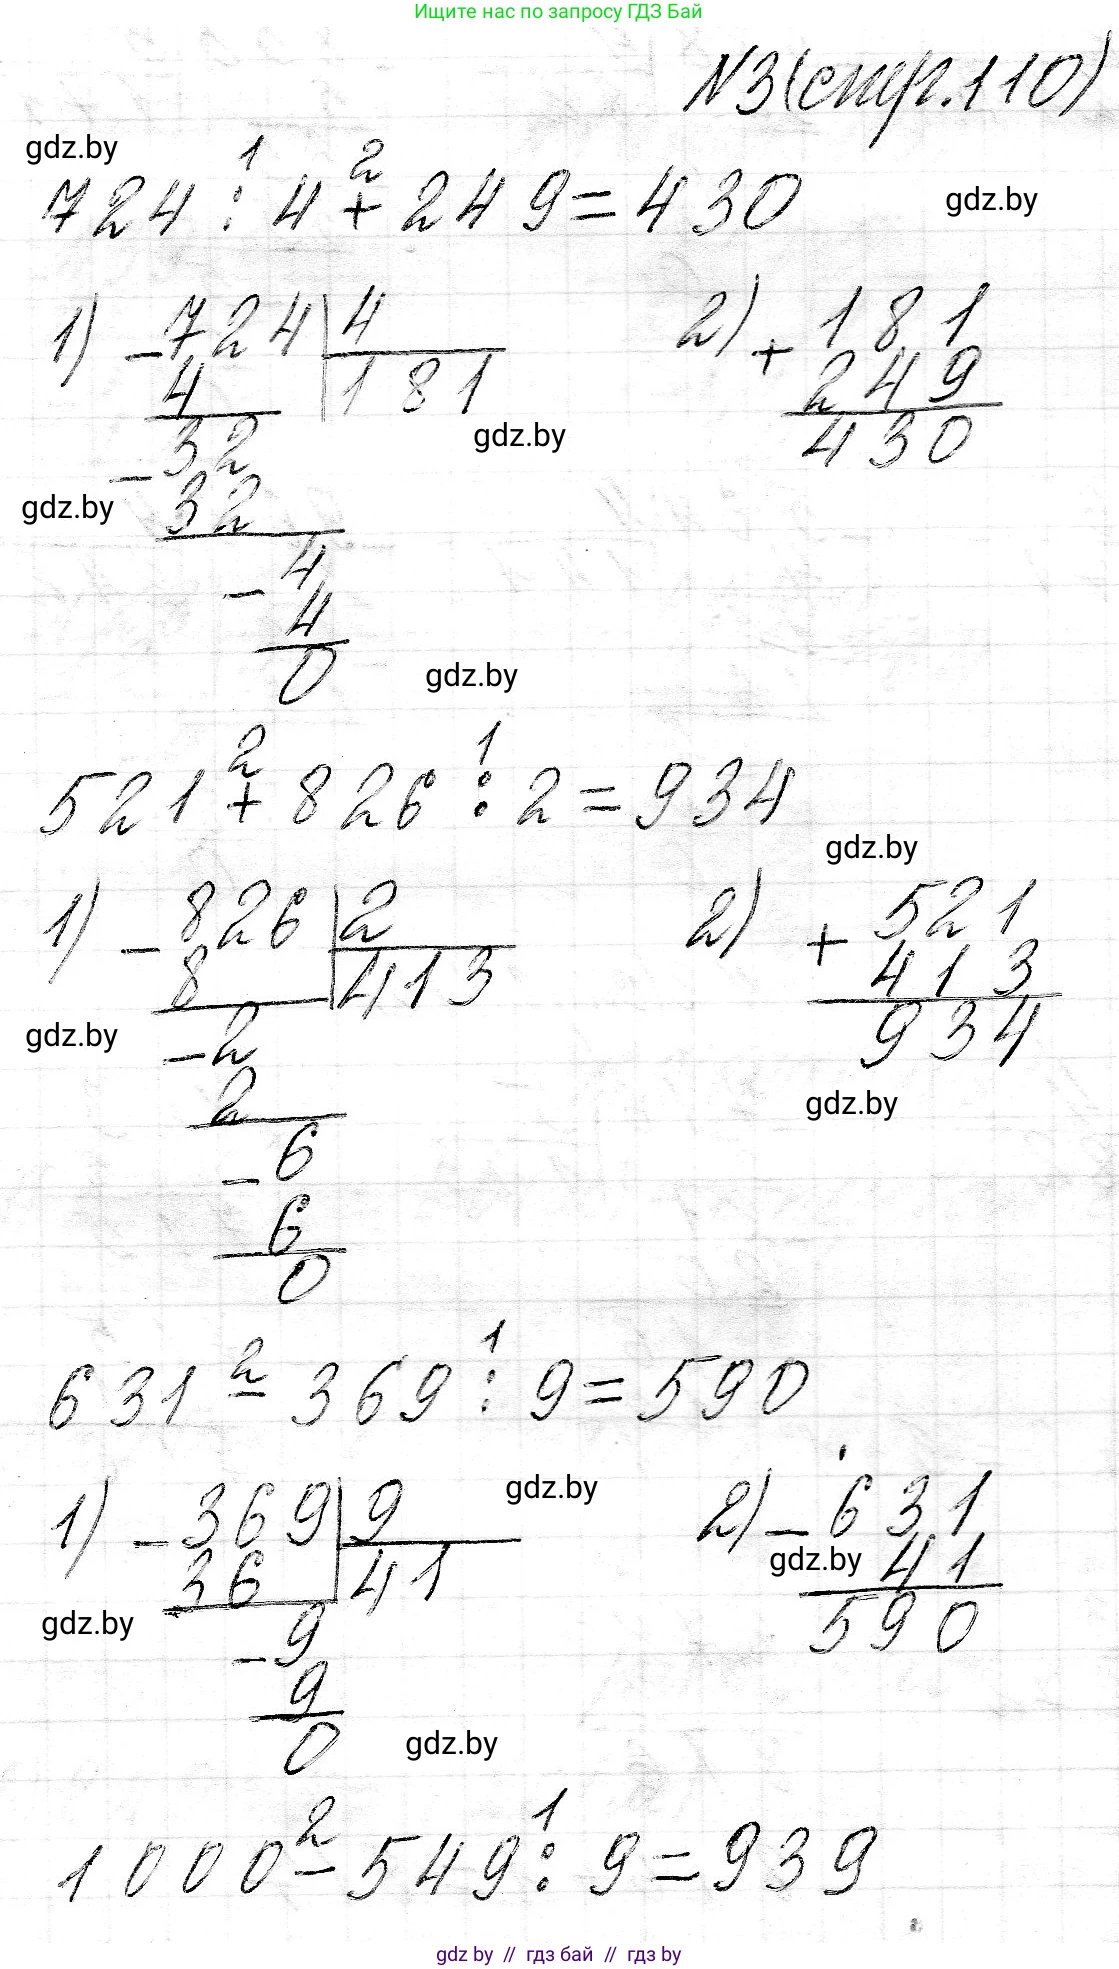 Ищите нас по запросу ГДЗ Бай
N3(стр.110)
gdz.by
1 2
724 : 4 + 249 = 430
gdz.by
1) - 724 | 4
4 | 181
- 32
32
- 4
4
0
2) + 181
249
430
gdz.by
gdz.by
gdz.by
2 1
521 + 826 : 2 = 934
gdz.by
1) - 826 | 2
8 | 413
- 2
2
- 6
6
0
2) + 521
413
934
gdz.by
gdz.by
2 1
631 - 369 : 9 = 590
1) - 369 | 9
36 | 41
- 9
9
0
gdz.by
2) - 631
41
590
gdz.by
gdz.by
gdz.by
2 1
1000 - 549 : 9 = 939
gdz by // гдз бай // гдз by